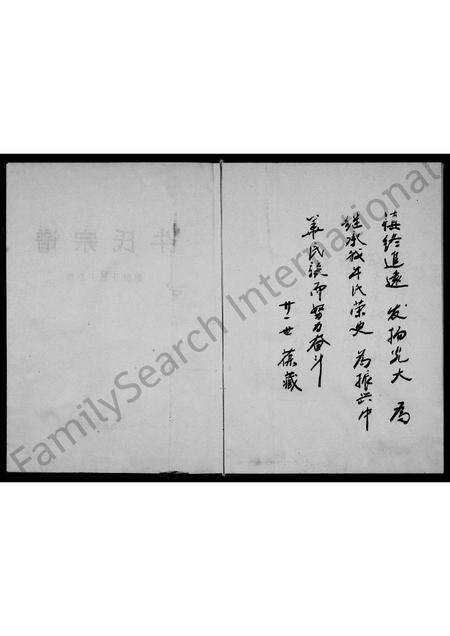 慎终追远 发扬光大 为
继承我牛氏荣史 为振兴中
华民族而努力奋斗
廿一世 葆藏
牛氏宗谱
FamilySearch International